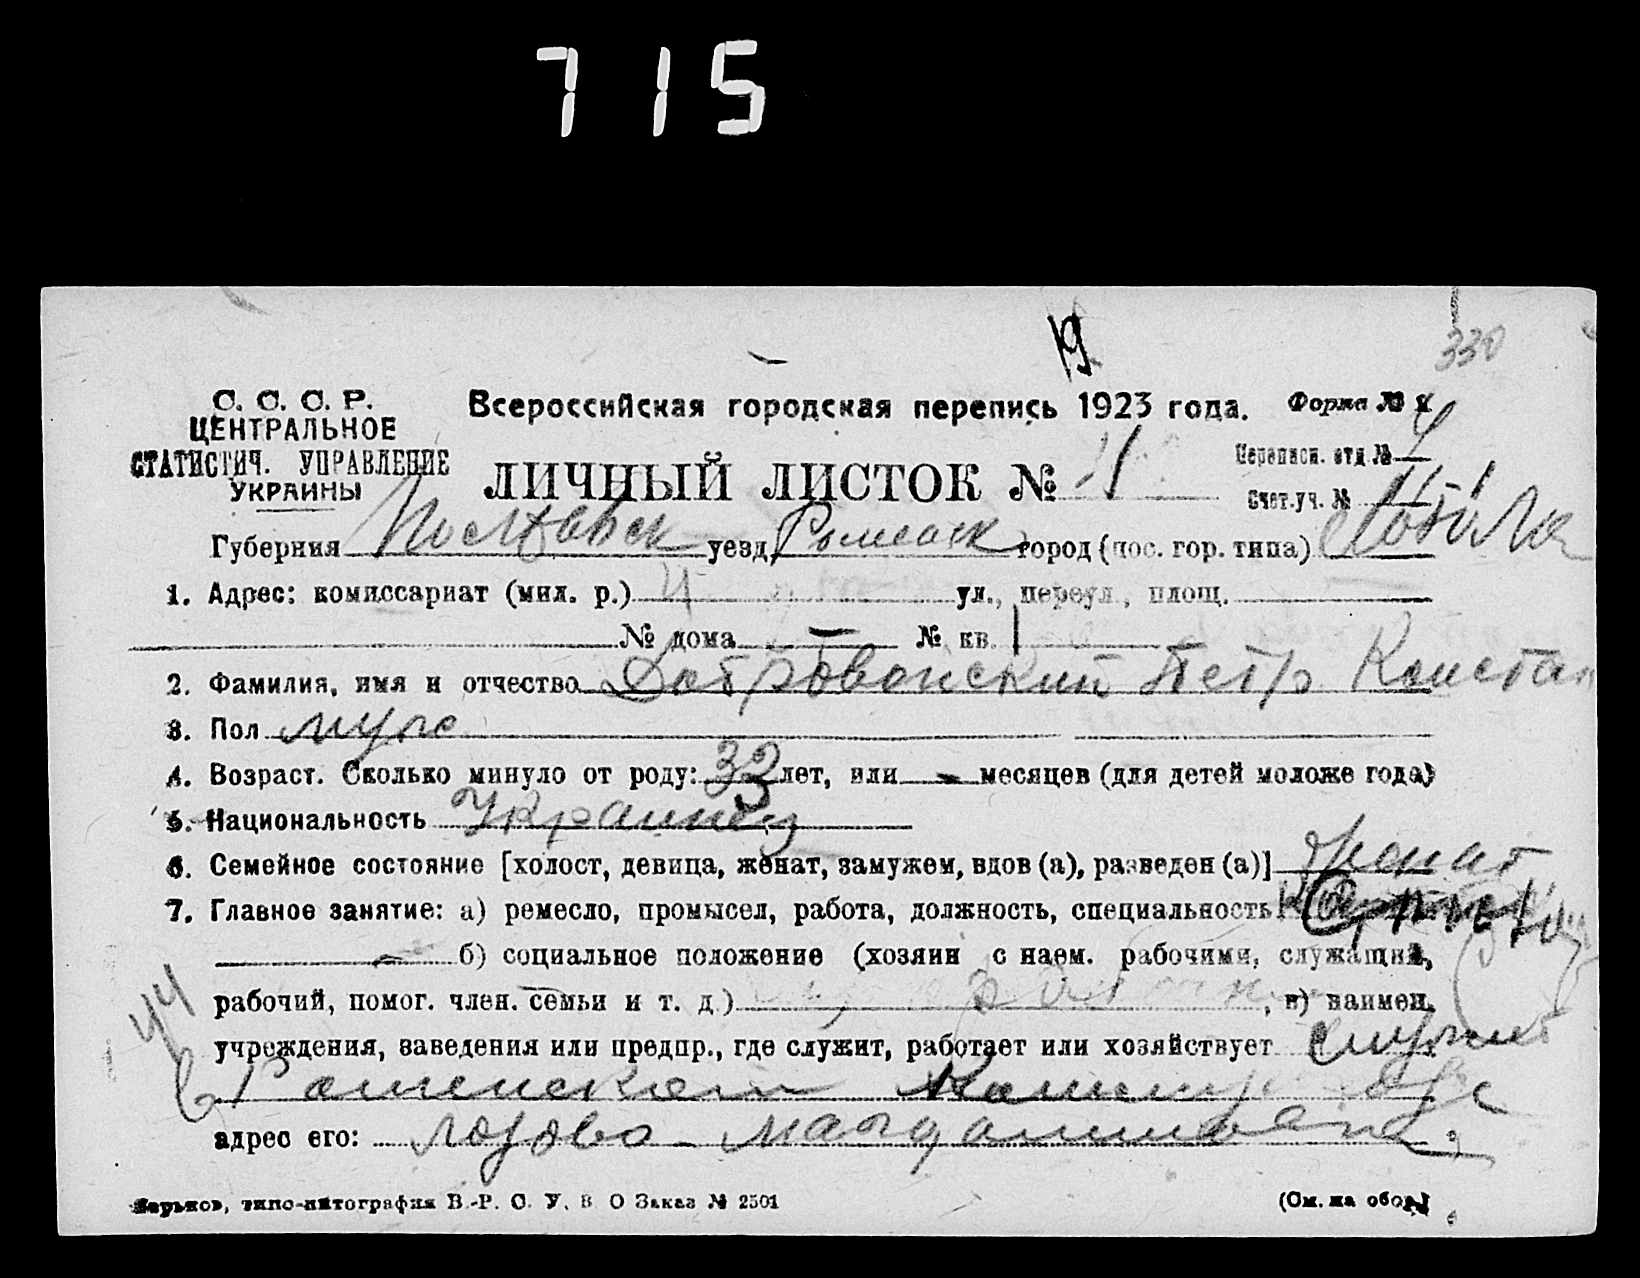 715
19
330
С. С. С. Р.
ЦЕНТРАЛЬНОЕ
СТАТИСТИЧ. УПРАВЛЕНИЕ
УКРАИНЫ
Всероссийская городская перепись 1923 года. Форма №
ЛИЧНЫЙ ЛИСТОК №
Переписн. отд. №
Счет. уч. №
Губерния Полтавск уезд Роменск город (пос. гор. типа)
1. Адрес: комиссариат (мил. р.) 4 ул., переул., площ.
№ дома — № кв.
2. Фамилия, имя и отчество Петр Констан
3. Пол муж
4. Возраст. Сколько минуло от роду: 33 лет, или — месяцев (для детей моложе года)
5. Национальность Украинец
6. Семейное состояние [холост, девица, женат, замужем, вдов (а), разведен (а)] женат
7. Главное занятие: а) ремесло, промысел, работа, должность, специальность
б) социальное положение (хозяин с наем. рабочими, служащий,
рабочий, помог. член. семьи и т. д.) , в) наимен.
44
учреждения, заведения или предпр., где служит, работает или хозяйствует служит
в Роменском
адрес его:
Харьков, типо-литография В.-Р. С. У. В О Заказ № 2501
(См. на обор.)